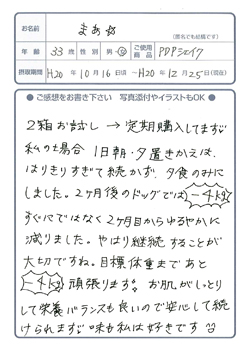 お名前 まあ☆
(匿名でも結構です)
年齢 33歳 性別 男・女 ご使用商品 PDPシェイク
摂取期間 H20年10月16日頃〜H20年12月25日(現在)
● ご感想をお書き下さい 写真添付やイラストもOK ●
2箱お試し → 定期購入してます♪
私の場合 1日朝・夕置きかえは、
はりきりすぎて続かず、夕食のみに
しました。2ヶ月後のドッグでは -4kg
すぐにではなく2ヶ月目からゆるやかに
減りました。やはり継続することが
大切ですね。目標体重まであと
-4kg 頑張ります。お肌がしっとり
して栄養バランスも良いので安心して続
けられます♪味も私は好きです☺